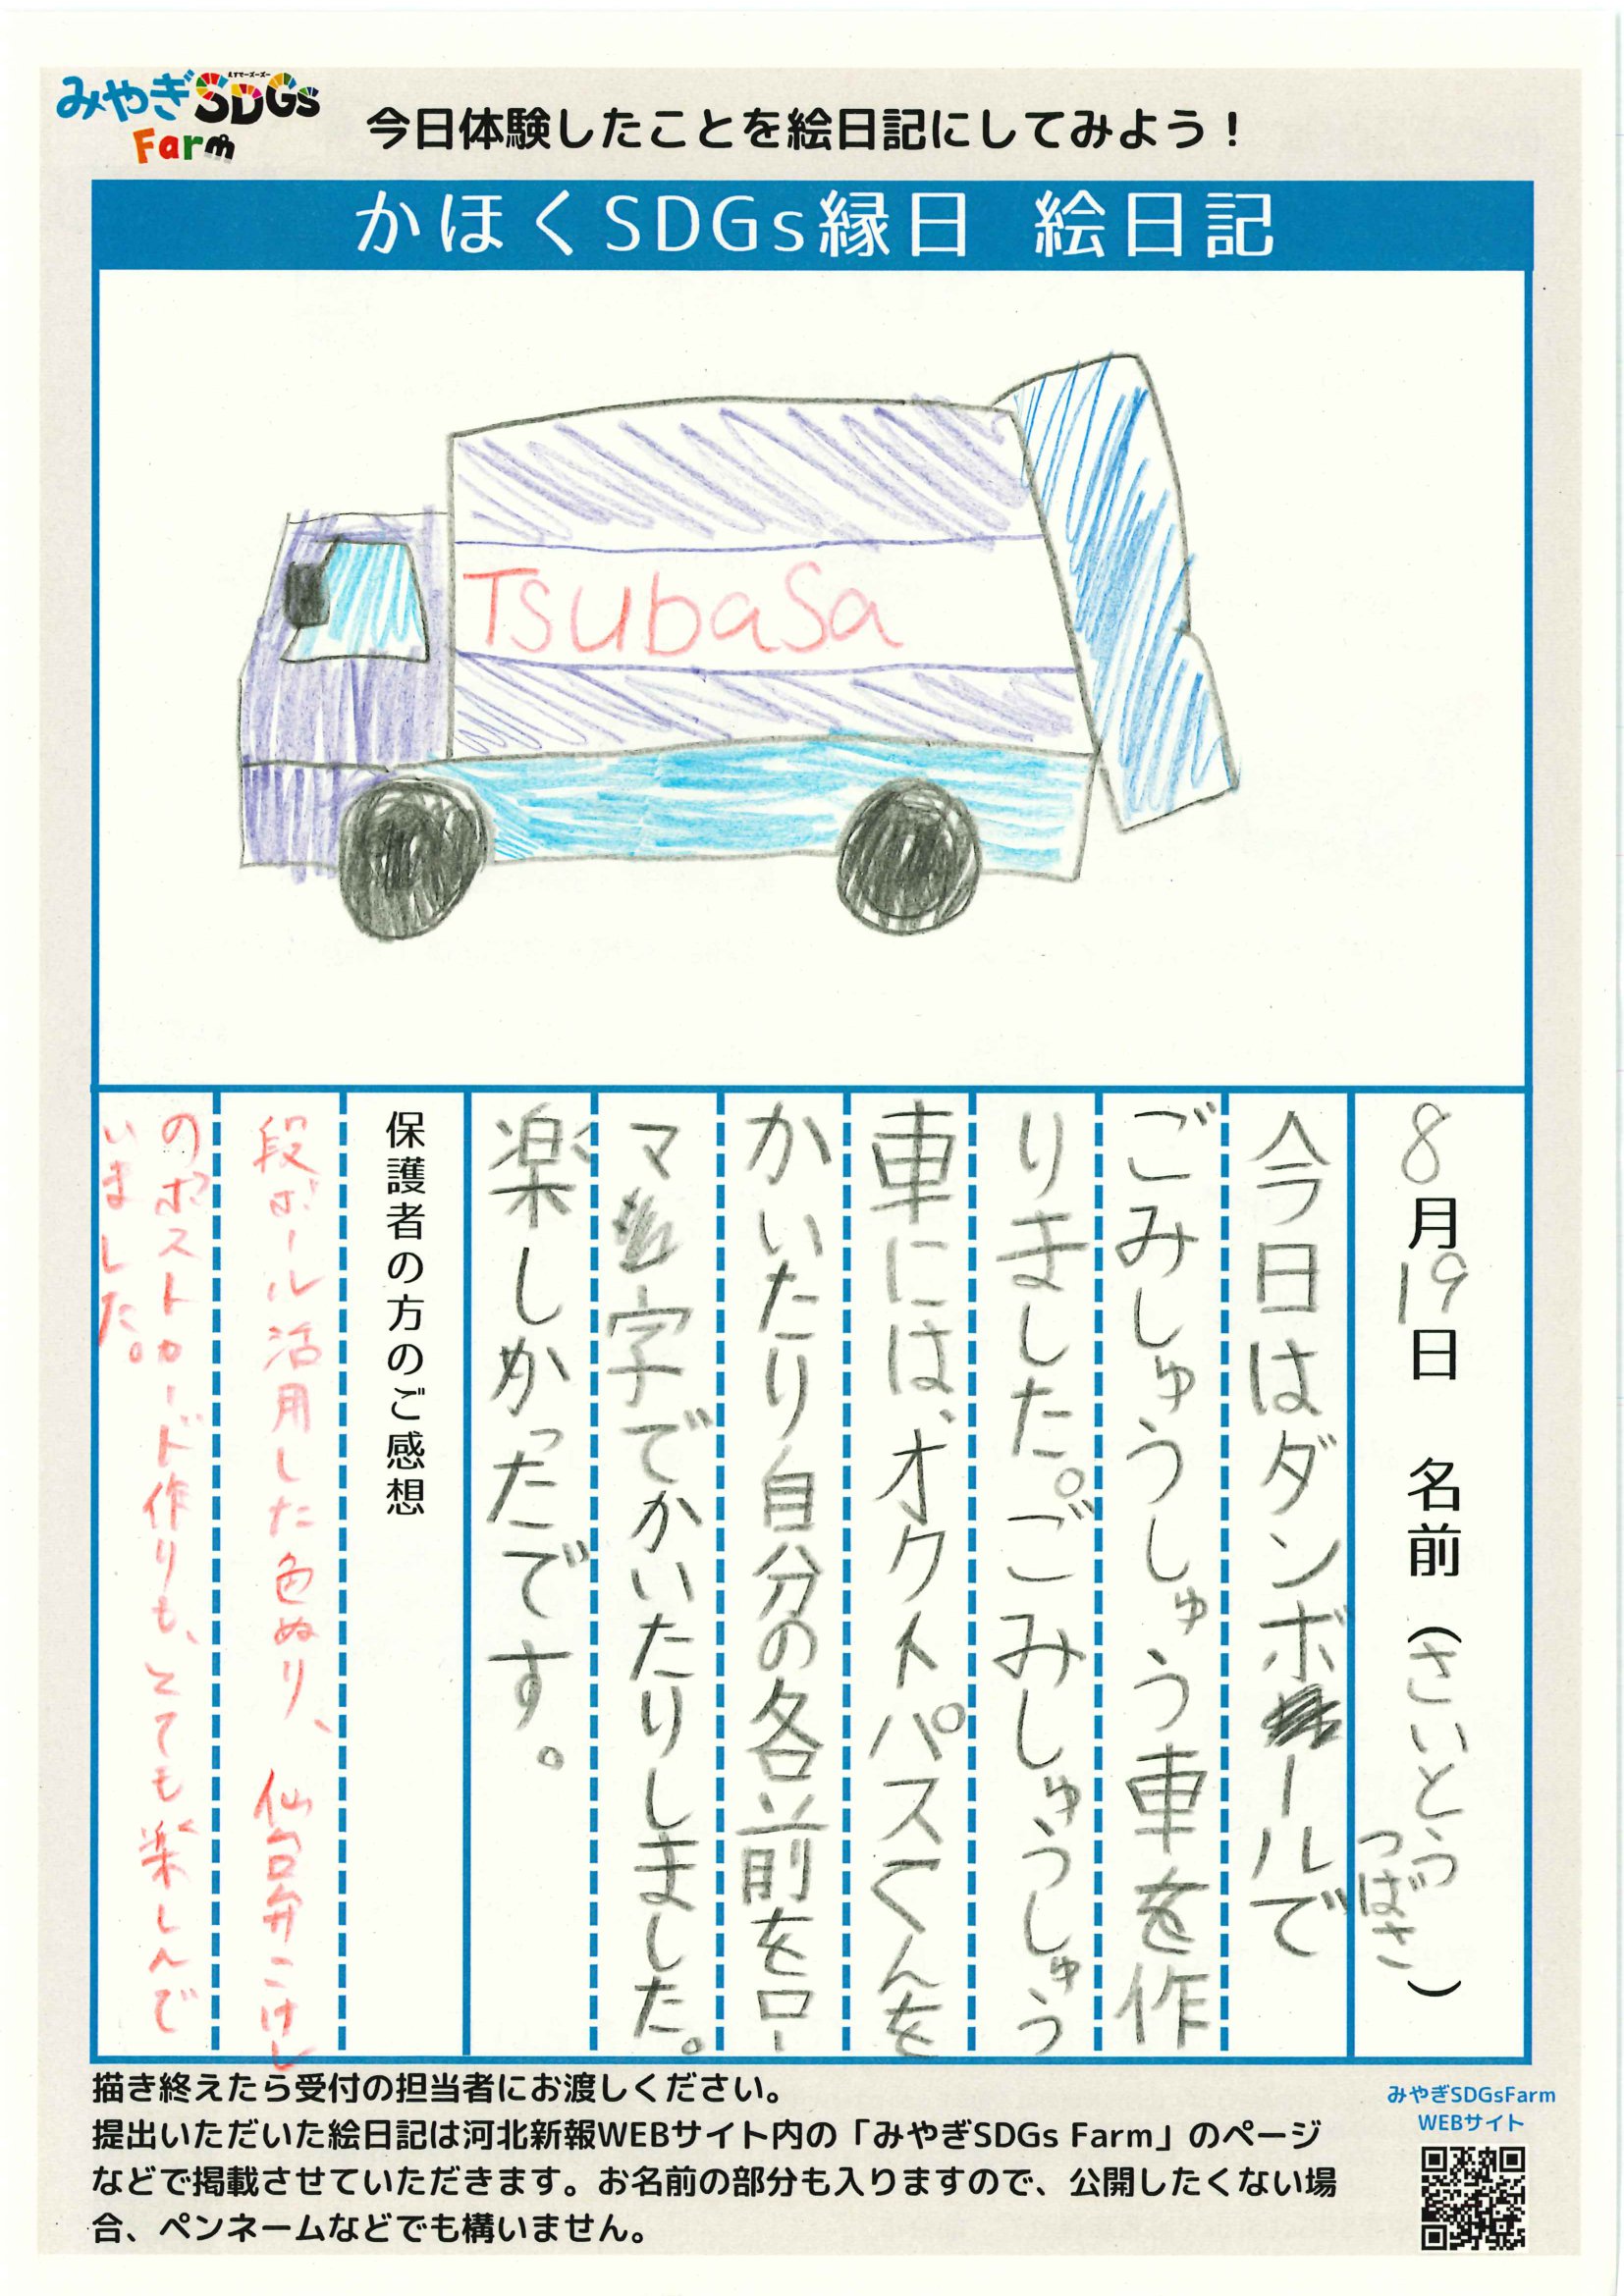 みやぎSDGs
えすでーじーず
Farm
今日体験したことを絵日記にしてみよう！
かほくSDGs縁日 絵日記
Tsubasa
8月19日 名前（さいとうつばさ）
今日はダンボールで
ごみしゅうしゅう車を作
りました。ごみしゅうしゅう
車には、オクトパスくんを
かいたり自分の名前をロー
マ字でかいたりしました。
楽しかったです。
保護者の方のご感想
段ボール活用した色ぬり、仙台弁こけし
のポストカード作りも、とても楽しんで
いました。
描き終えたら受付の担当者にお渡しください。
提出いただいた絵日記は河北新報WEBサイト内の「みやぎSDGs Farm」のページ
などで掲載させていただきます。お名前の部分も入りますので、公開したくない場
合、ペンネームなどでも構いません。
みやぎSDGsFarm
WEBサイト